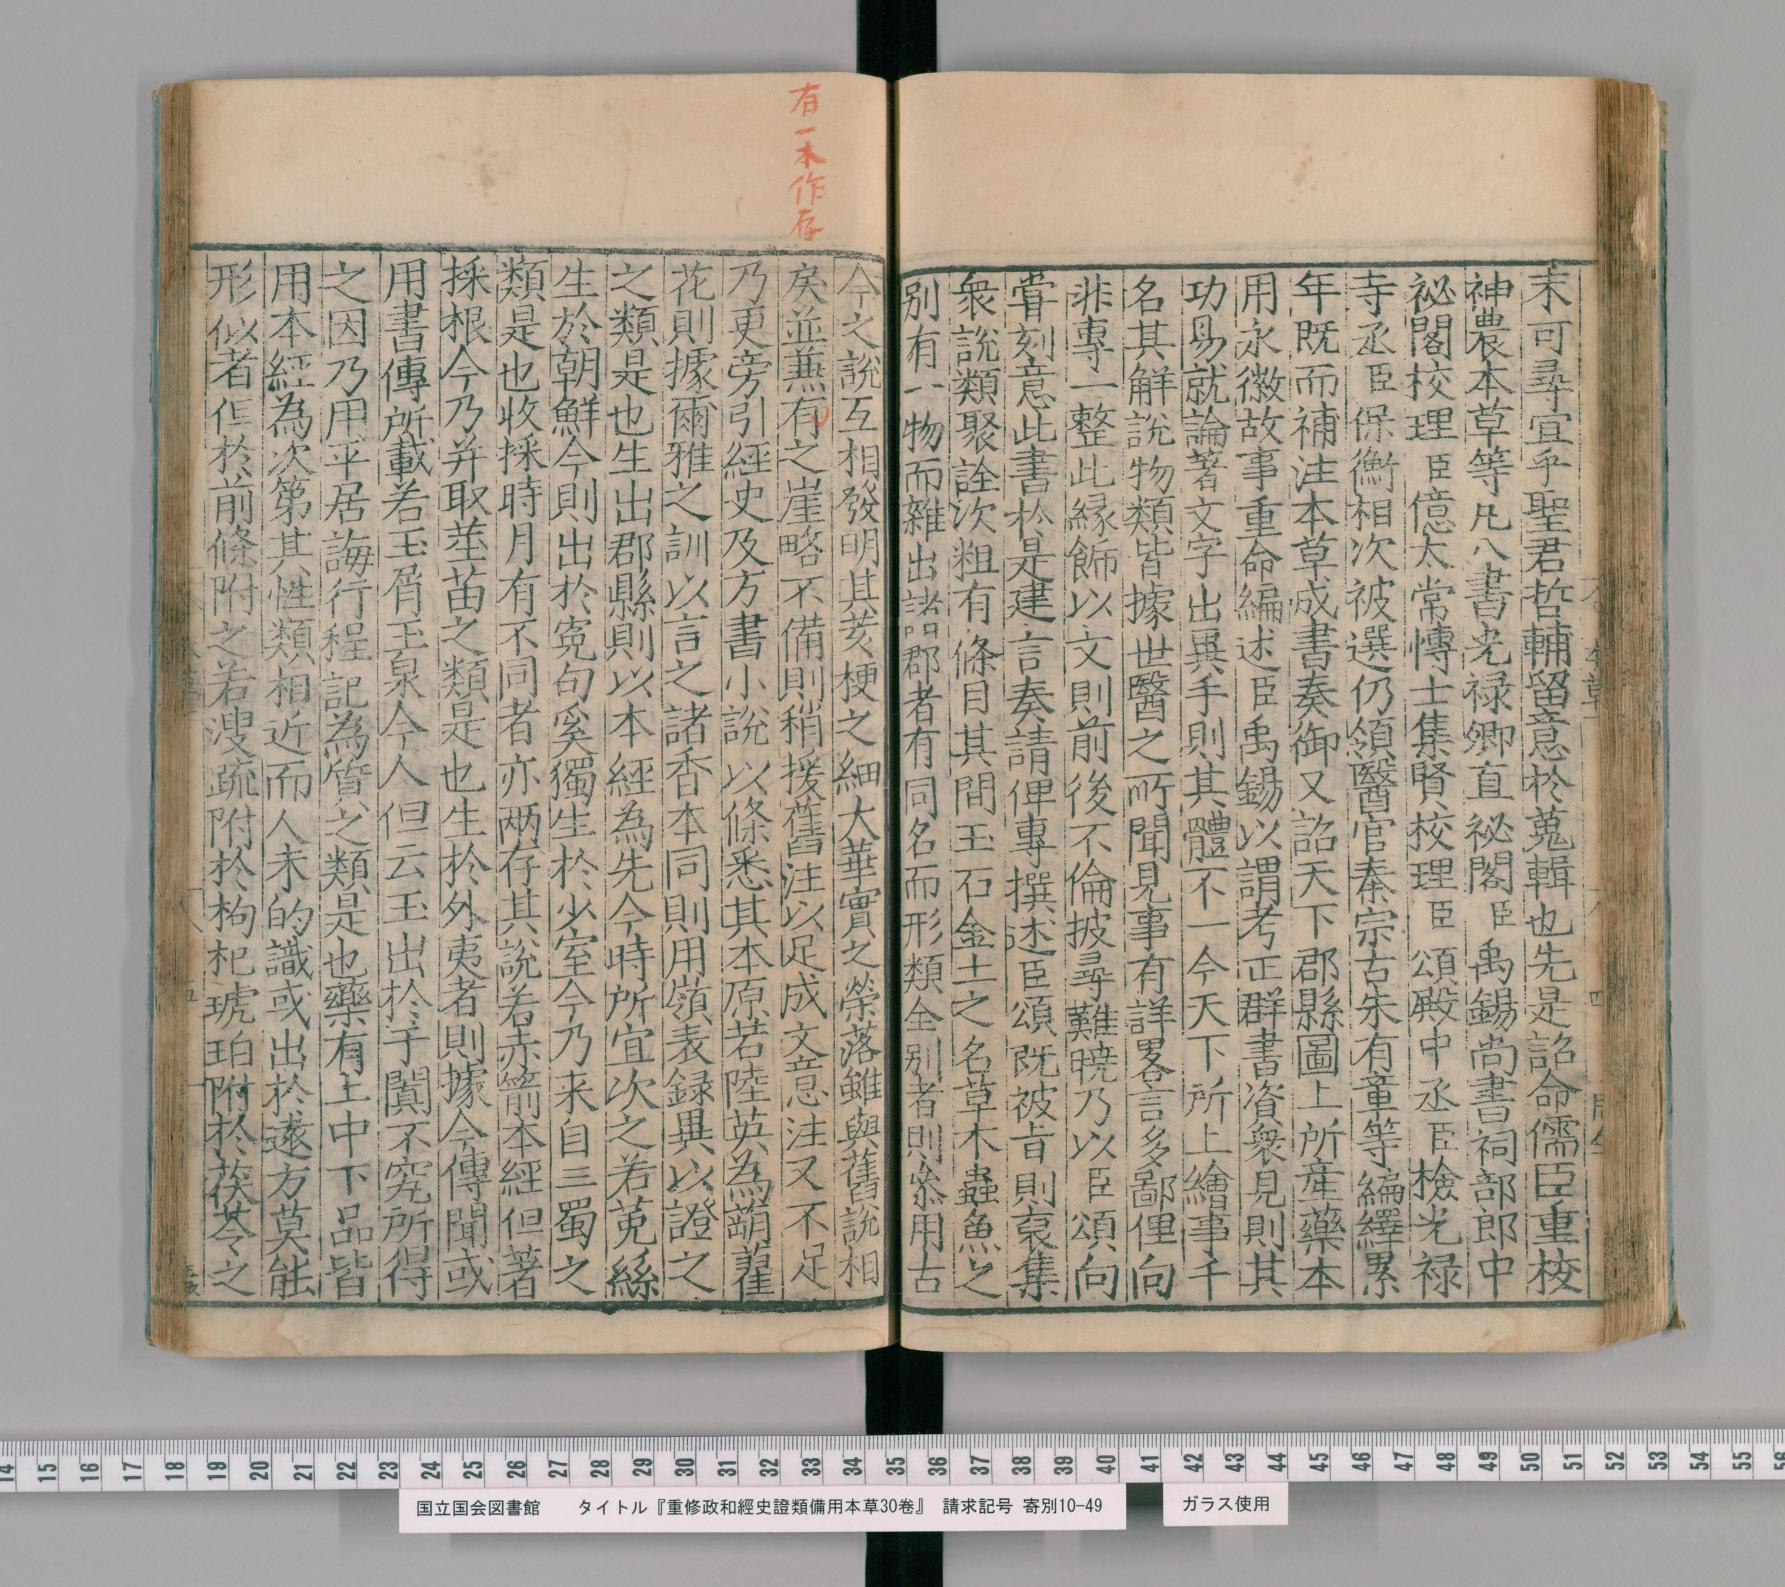 末可尋宜乎聖君哲輔留意於蒐輯也先是詔命儒臣重校
神農本草等凡八書光禄卿直祕閣臣禹錫尚書祠部郎中
祕閣校理臣億太常愽士集賢校理臣頌殿中丞臣檢光禄
寺丞臣保衡相次被選仍領醫官秦宗古朱有章等編繹累
年既而補注本草成書奏御又詔天下郡縣圖上所産藥本
用永徽故事重命編述臣禹錫以謂考正群書資衆見則其
功易就論著文字出異手則其體不一今天下所上繪事千
名其解說物類皆據世醫之所聞見事有詳畧言多鄙俚向
非專一整比緣飾以文則前後不倫披尋難曉乃以臣頌向
甞刻意此書於是建言奏請俾專撰述臣頌既被㫖則裒集
衆說類聚詮次粗有條目其間玉石金土之名草木蟲魚之
别有一物而雜出諸郡者有同名而形類全别者則叅用古
有一本作存
今之說互相發明其荄梗之細大華實之榮落雖與舊說相
戾並蕪有之崖略不備則稍援舊注以足成文意注又不足
乃更旁引經史及方書小說以條悉其本原若陸英為蒴藋
花則據爾雅之訓以言之諸香本同則用嶺表録異以證之
之類是也生出郡縣則以本經為先今時所宜次之若菟絲
生於朝鮮今則出於寃句奚獨生於少室今乃来自三蜀之
類是也收採時月有不同者亦两存其說若赤箭本經但著
採根今乃并取莖苗之類是也生於外夷者則據今傳聞或
用書傳所載若玉屑玉泉今人但云玉出於于闐不究所得
之因乃用平居誨行程記為質之類是也藥有上中下品皆
用本經為次第其性類相近而人未的識或出於遠方莫能
形似者但於前條附之若溲疏附於枸杞琥珀附於茯苓之
国立国会図書館 タイトル『重修政和經史證類備用本草30巻』 請求記号 寄別10-49
ガラス使用
14 15 16 17 18 19 20 21 22 23 24 25 26 27 28 29 30 31 32 33 34 35 36 37 38 39 40 41 42 43 44 45 46 47 48 49 50 51 52 53 54 55 56